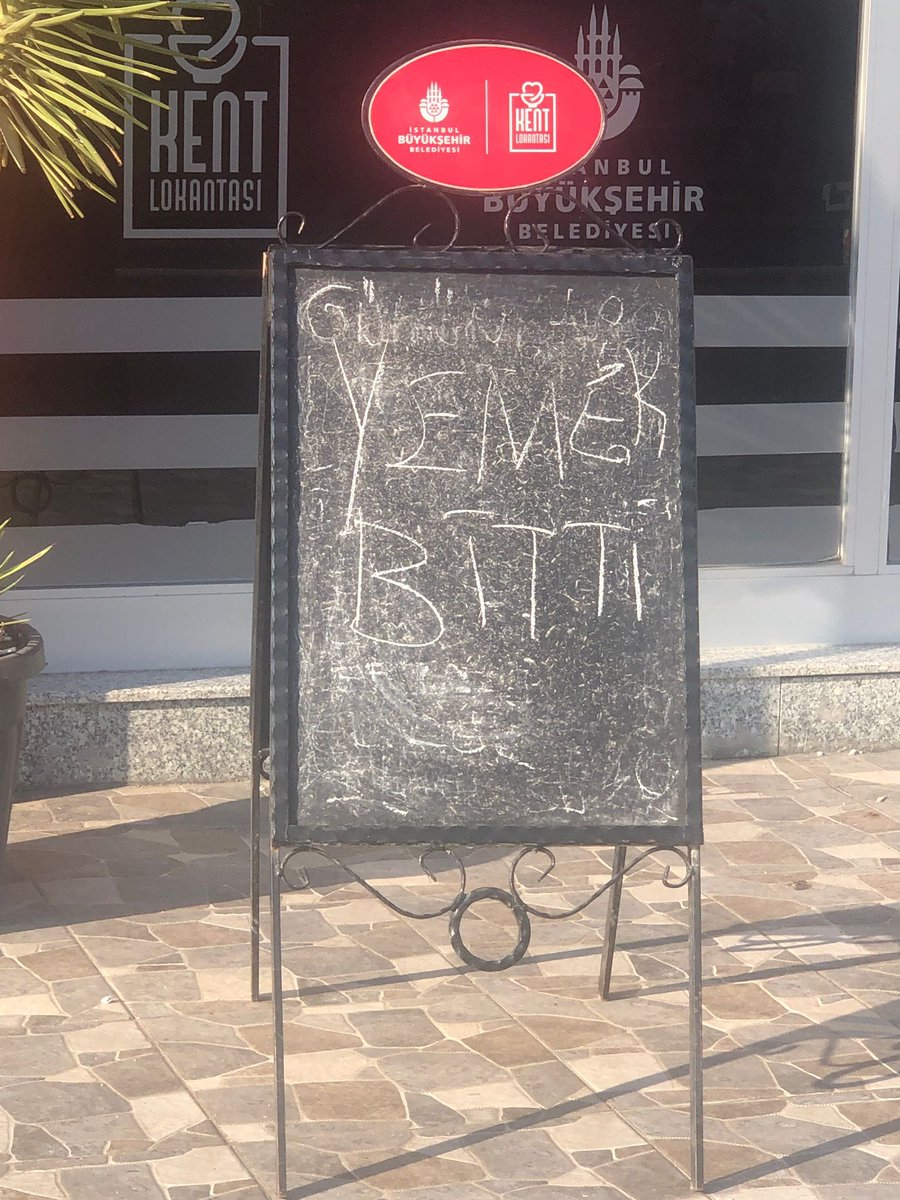 KENT
LOKANTASI
İSTANBUL
BÜYÜKŞEHİR
BELEDİYESİ
KENT
LOKANTASI
İSTANBUL
BÜYÜKŞEHİR
BELEDİYESİ
YEMEK
BİTTİ